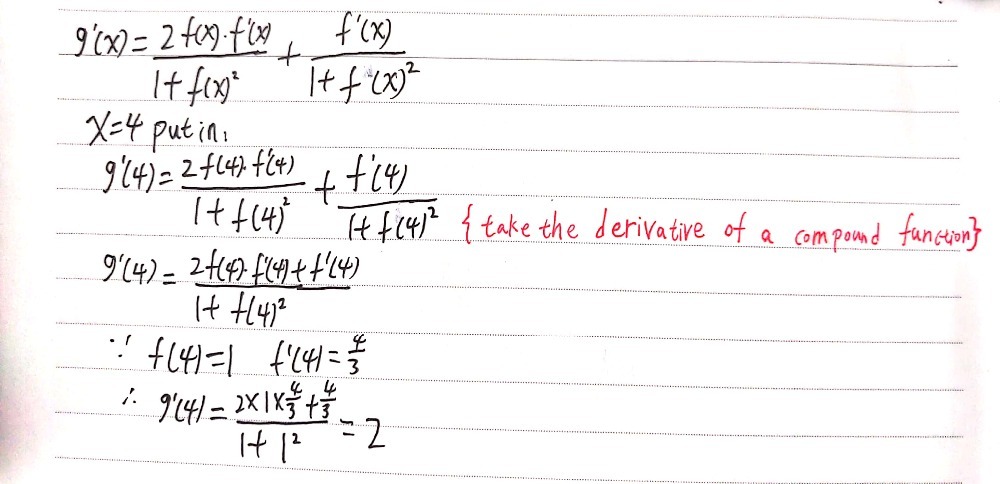 g'(x) = 2f(x)·f'(x) / 1+f(x)² + f'(x) / 1+f(x)²
x=4 put in:
g'(4) = 2f(4)·f'(4) / 1+f(4)² + f'(4) / 1+f(4)² {take the derivative of a compound function}
g'(4) = 2f(4)·f'(4)+f'(4) / 1+f(4)²
∵ f(4)=1 f'(4)=4/3
∴ g'(4) = 2×1×4/3+4/3 / 1+1² = 2